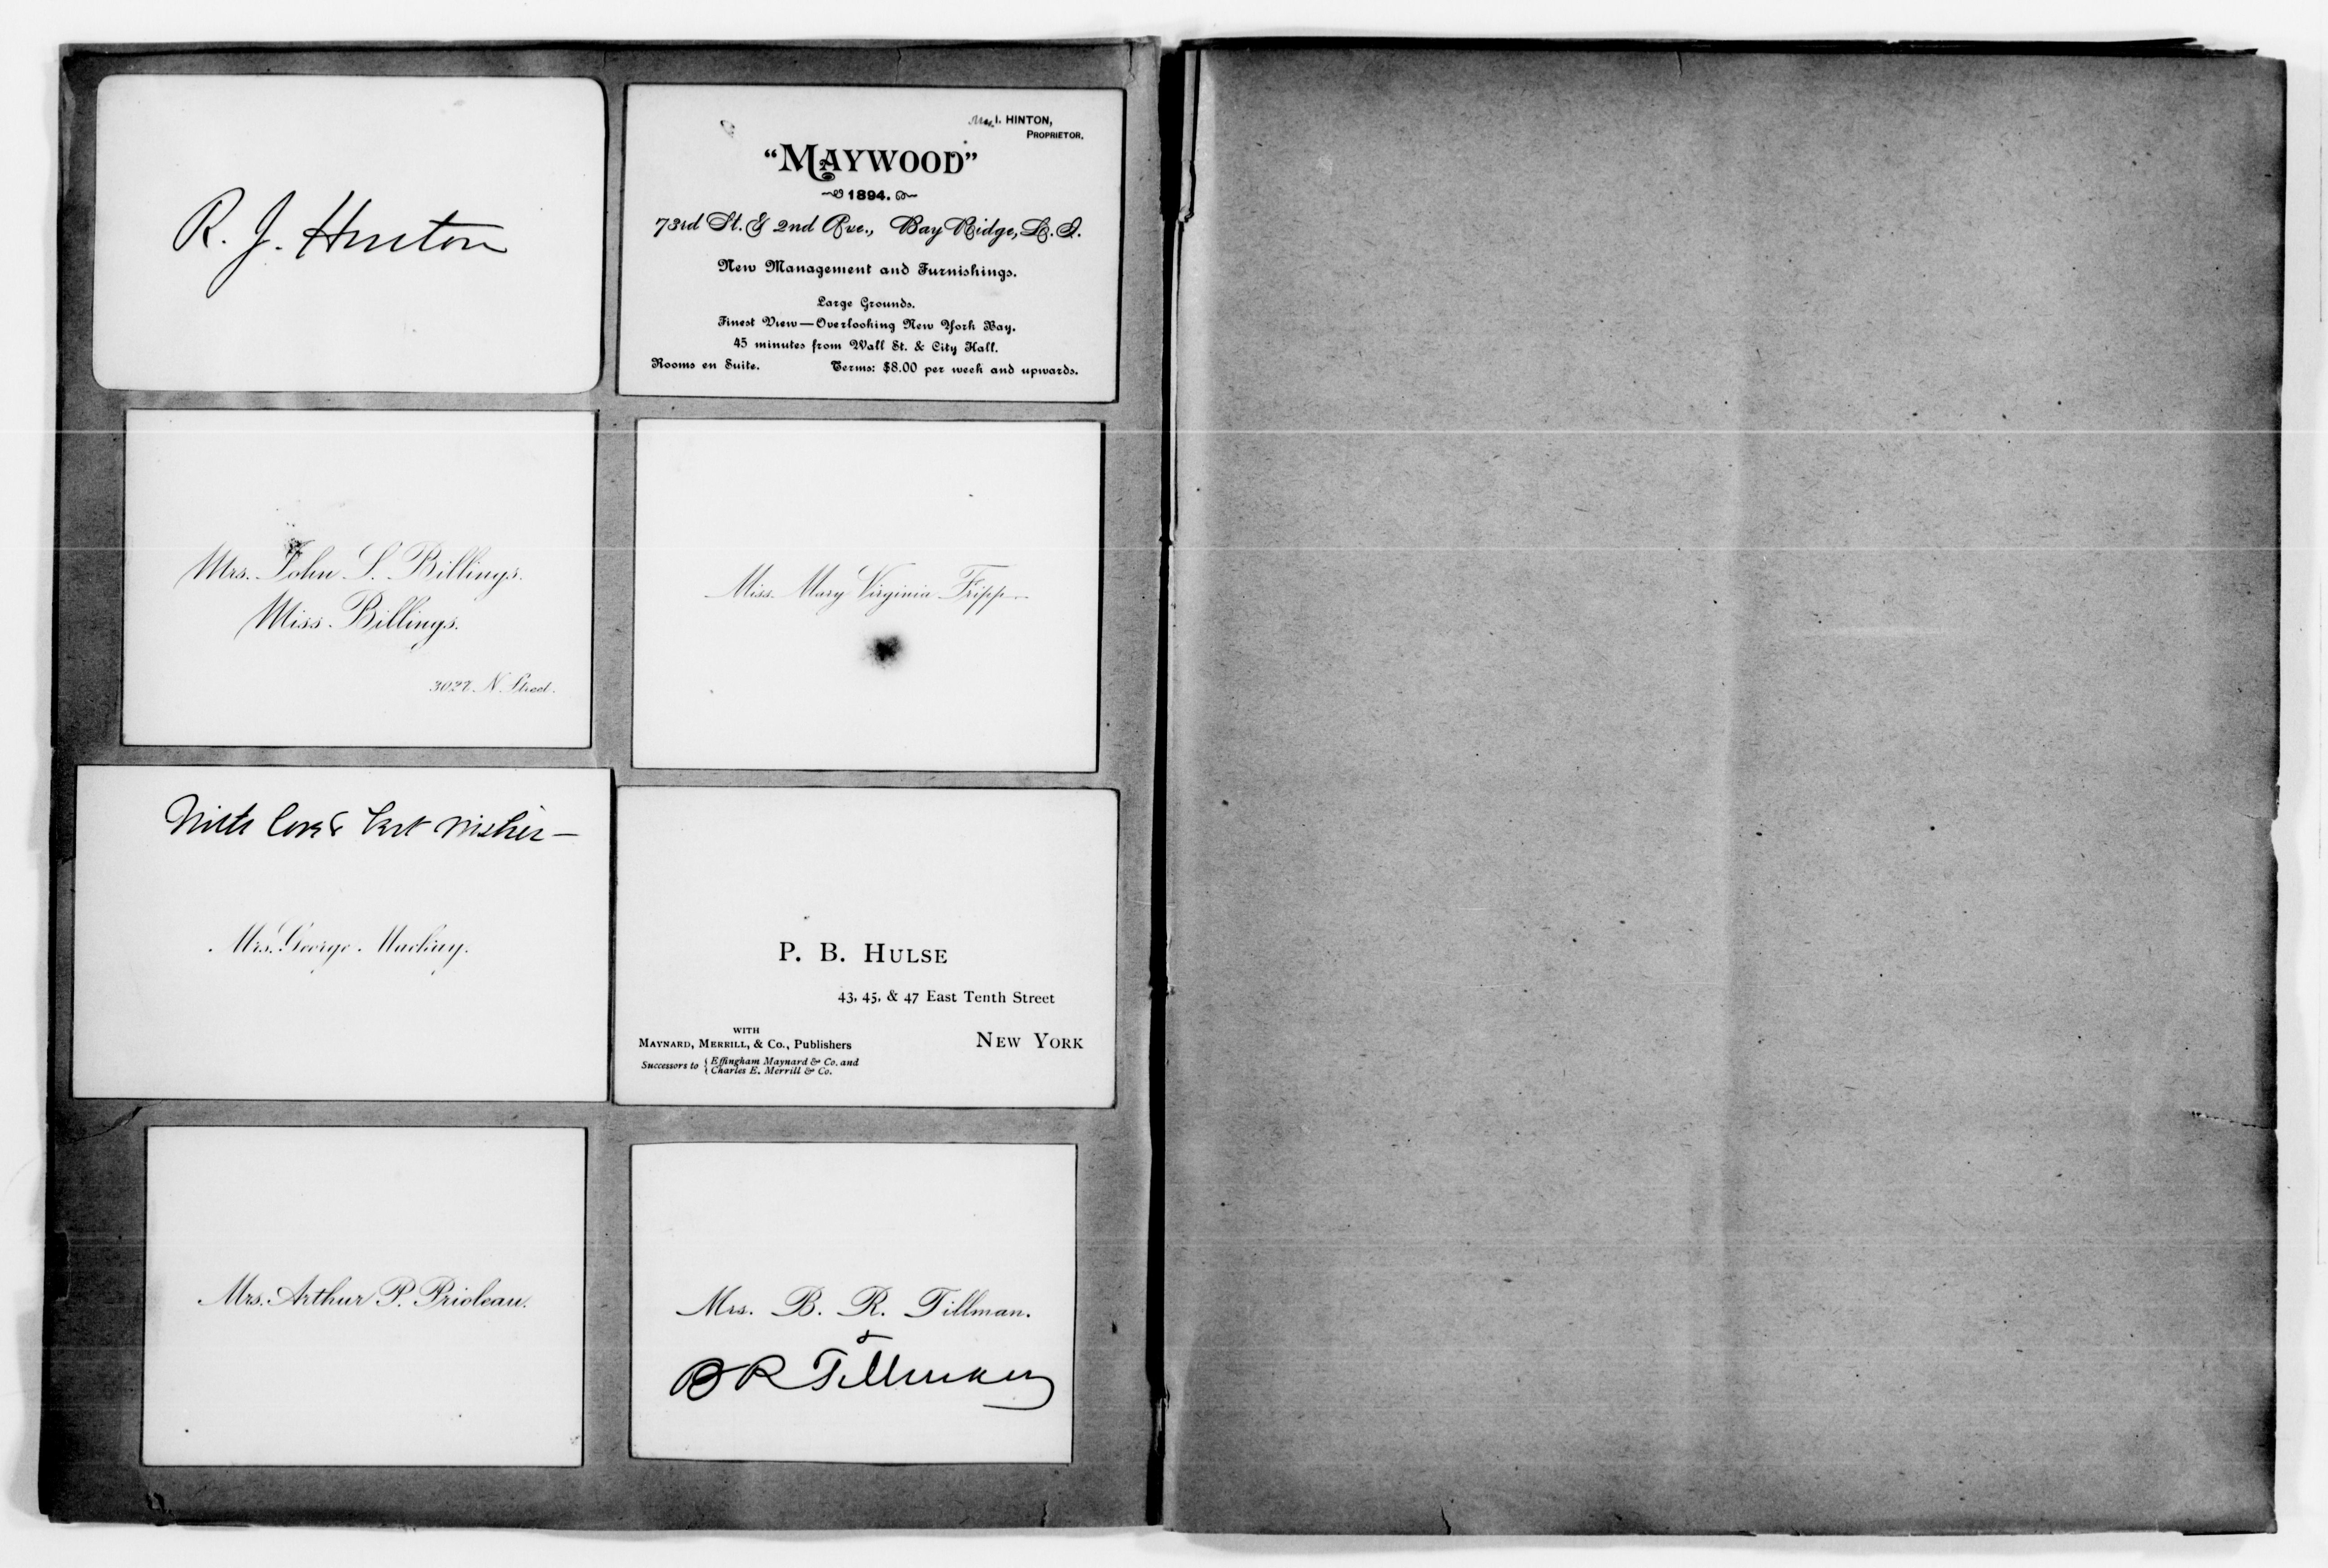 R. J. Hinton
Mrs. I. HINTON,
PROPRIETOR.
"MAYWOOD"
1894.
73rd St. & 2nd Ave., Bay Ridge, L. I.
New Management and Furnishings.
Large Grounds.
Finest View—Overlooking New York Bay.
45 minutes from Wall St. & City Hall.
Rooms en Suite. Terms: $8.00 per week and upwards.
Mrs. John S. Billings.
Miss Billings.
3027 N Street.
Miss Mary Virginia Fripp
With love & best wishes—
Mrs. George Mackay.
P. B. HULSE
43, 45, & 47 East Tenth Street
NEW YORK
WITH
MAYNARD, MERRILL, & Co., Publishers
Successors to { Effingham Maynard & Co. and
Charles E. Merrill & Co.
Mrs. Arthur P. Prioleau.
Mrs. B. R. Tillman.
&
B R Tillman